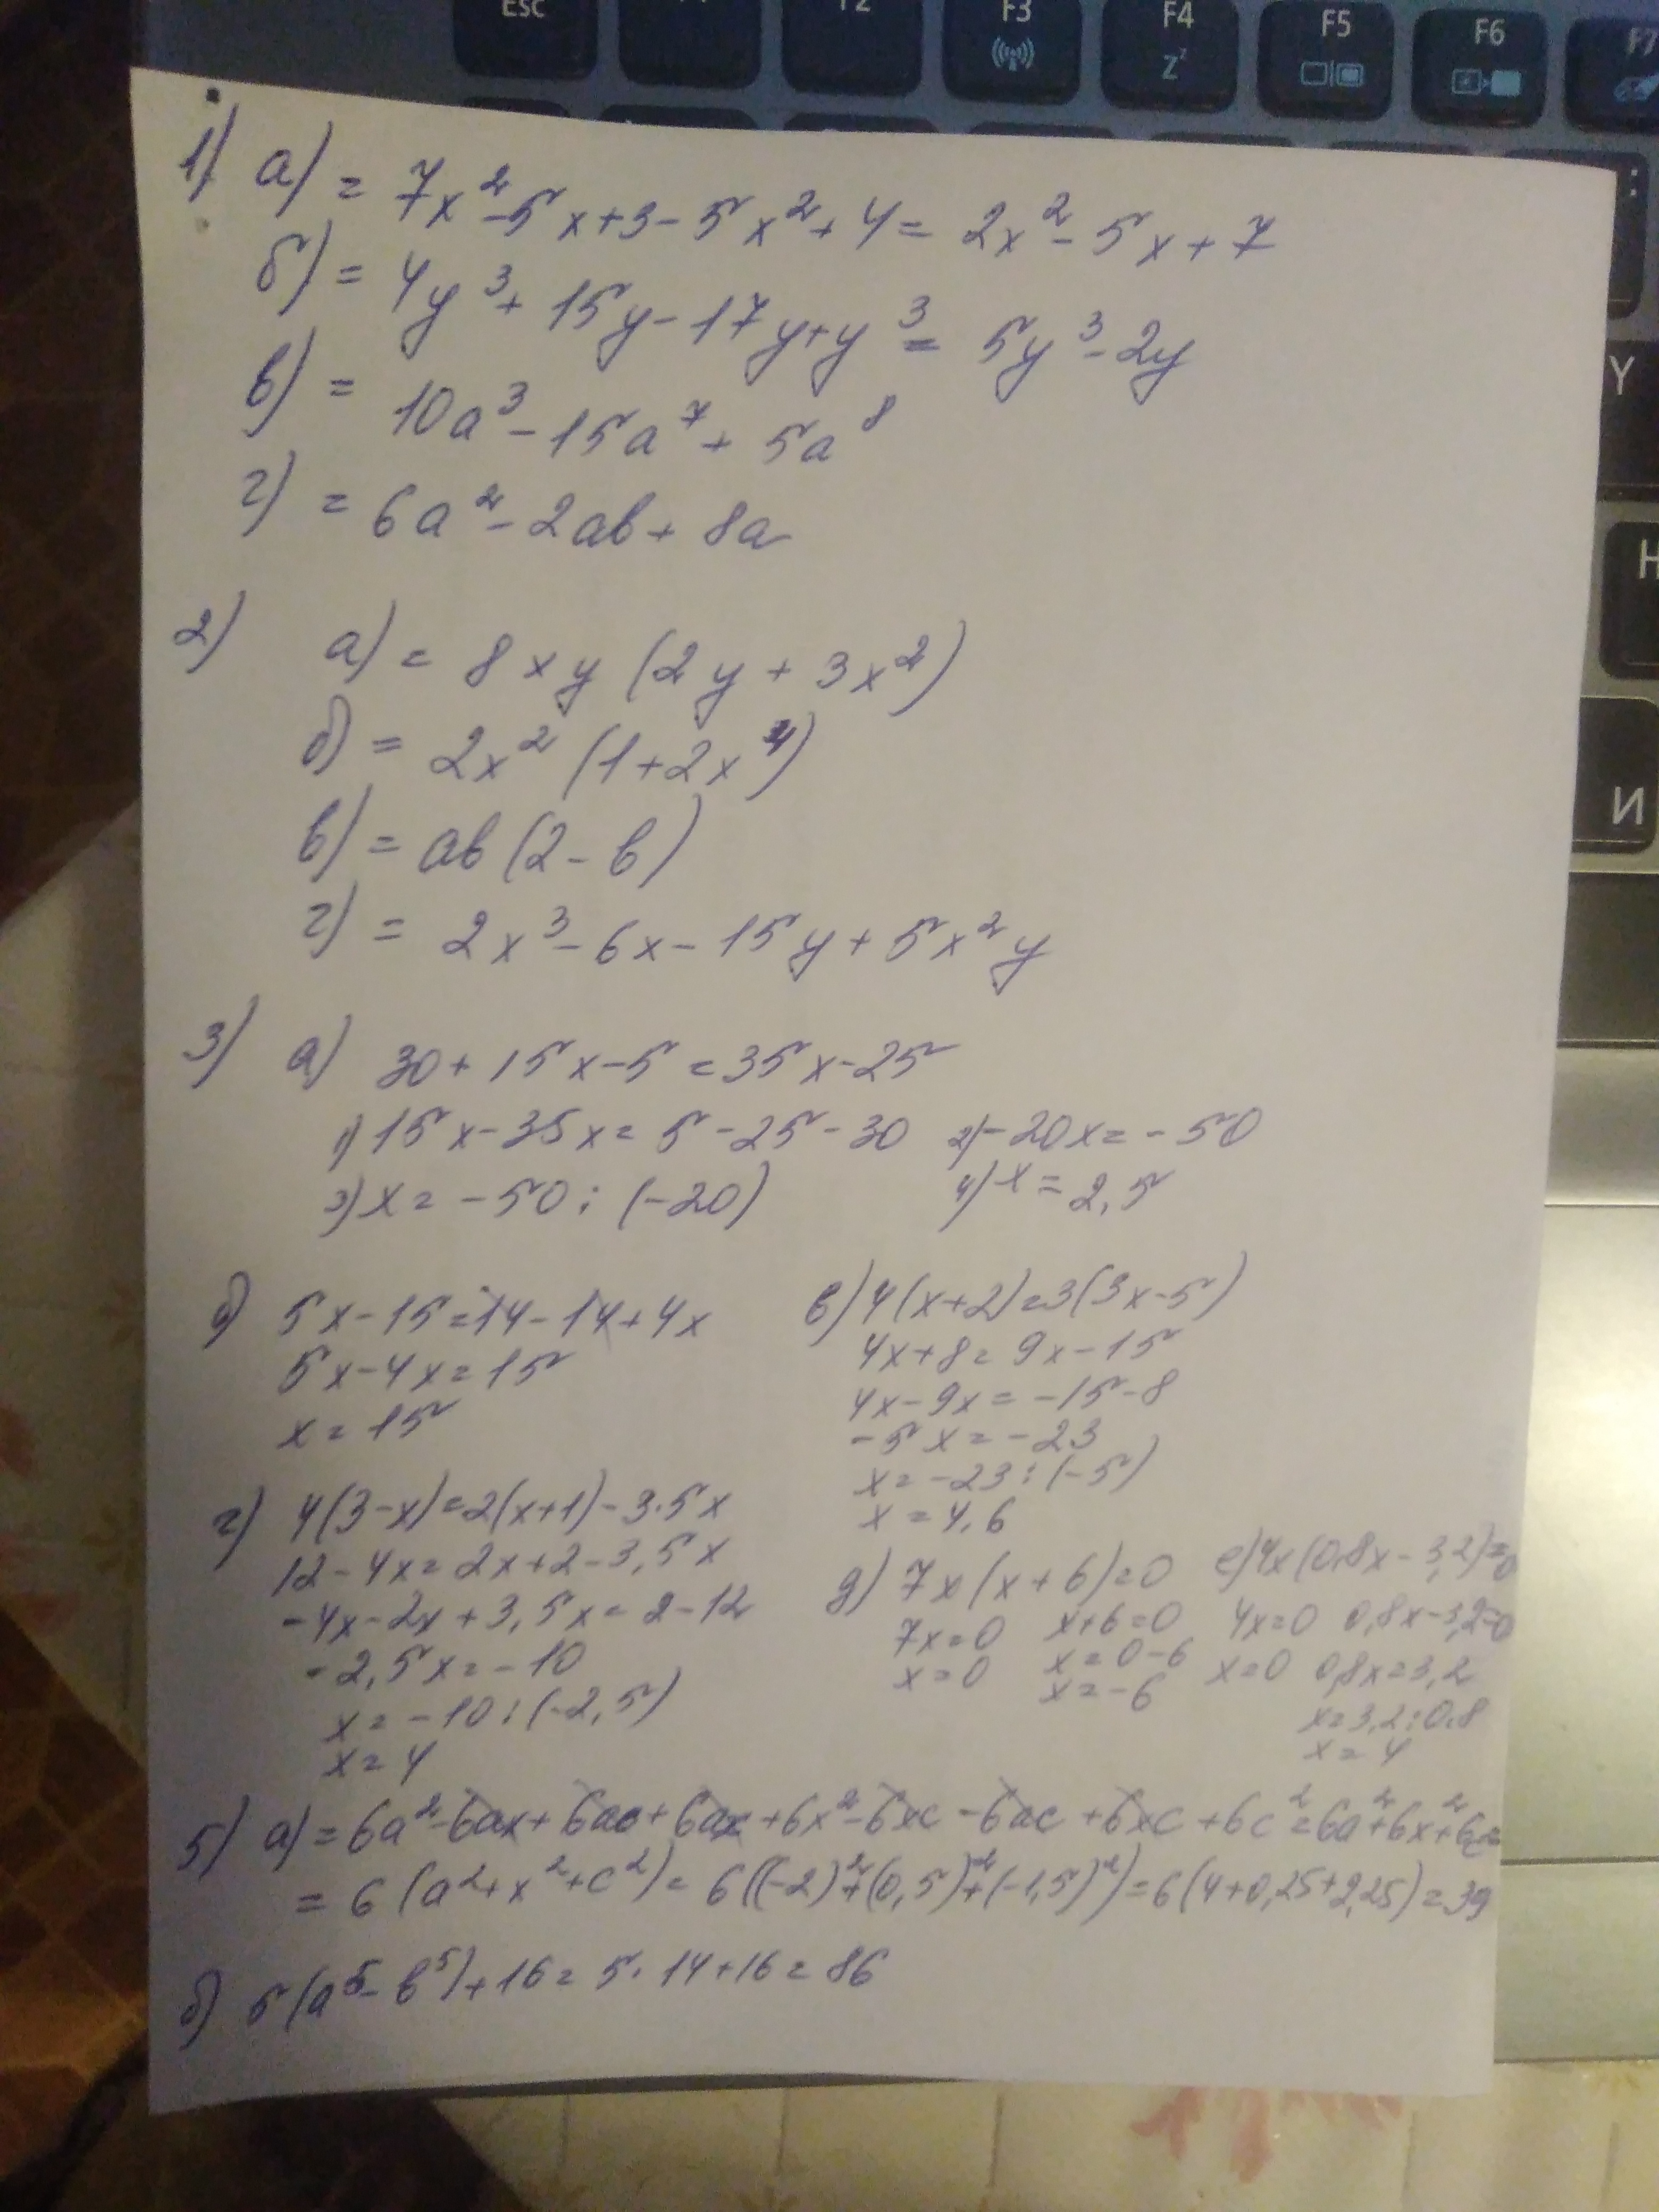 Esc F2 F3 F4 F5 F6 F7
Zᶻ
1) а) = 7x² - 5x + 3 - 5x² + 4 = 2x² - 5x + 7
б) = 4y³ + 15y - 17y + y³ = 5y³ - 2y
в) = 10a³ - 15a⁷ + 5a⁸
г) = 6a² - 2ab + 8a
2) а) = 8xy (2y + 3x²)
б) = 2x² (1 + 2x⁴)
в) = ab (2 - b)
г) = 2x³ - 6x - 15y + 5x²y
3) а) 30 + 15x - 5 = 35x - 25
1) 15x - 35x = 5 - 25 - 30 2) -20x = -50
3) x = -50 : (-20) 4) x = 2,5
б) 5x - 15 = 14 - 14 + 4x
5x - 4x = 15
x = 15
в) 4(x+2) = 3(3x-5)
4x + 8 = 9x - 15
4x - 9x = -15 - 8
-5x = -23
x = -23 : (-5)
x = 4,6
г) 4(3-x) = 2(x+1) - 3,5x
12 - 4x = 2x + 2 - 3,5x
-4x - 2x + 3,5x = 2 - 12
-2,5x = -10
x = -10 : (-2,5)
x = 4
д) 7x(x+6) = 0
7x = 0 x+6 = 0
x = 0 x = 0 - 6
x = -6
е) 4x(0,8x - 3,2) = 0
4x = 0 0,8x - 3,2 = 0
x = 0 0,8x = 3,2
x = 3,2 : 0,8
x = 4
5) а) = 6a² - 6ax + 6ac + 6ax + 6x² - 6xc - 6ac + 6xc + 6c² = 6a² + 6x² + 6c² =
= 6(a² + x² + c²) = 6((-2)² + (0,5)² + (-1,5)²) = 6(4 + 0,25 + 2,25) = 39
б) 5(a⁵ - b⁵) + 16 = 5 · 14 + 16 = 86
Y
Н
И